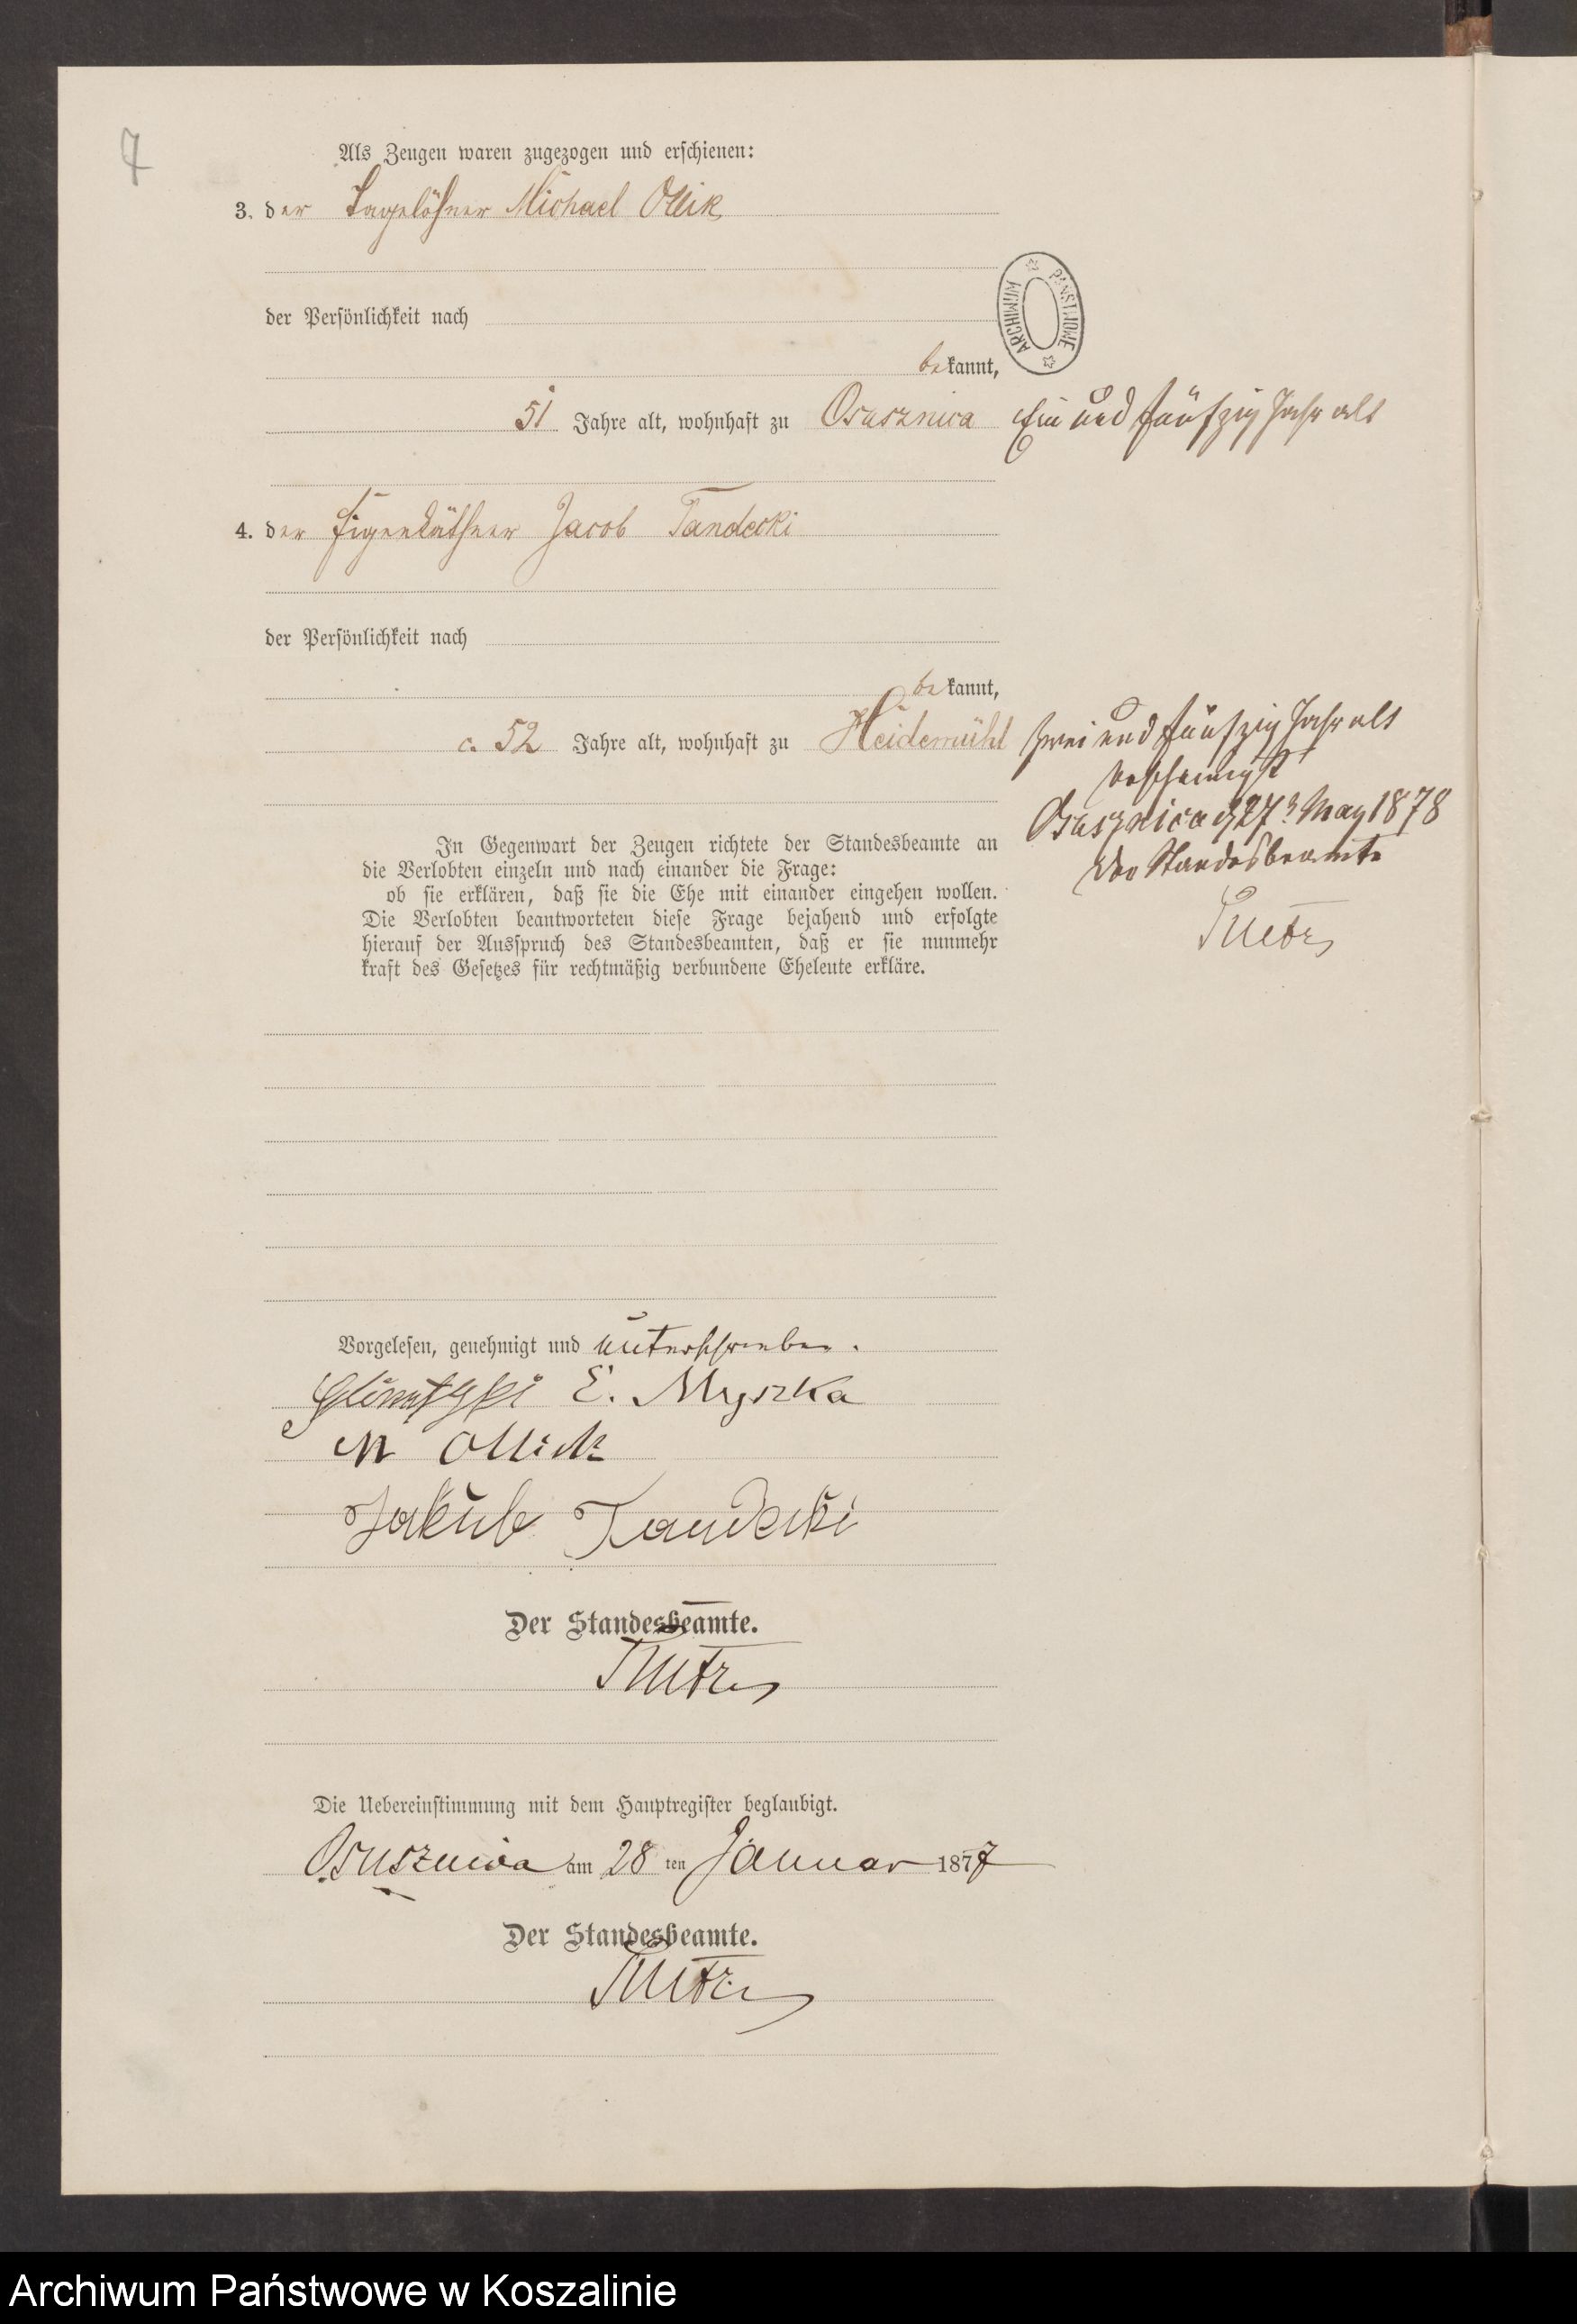 7
Als Zeugen waren zugezogen und erschienen:
3. der Tagelöhner Michael Ollik
der Persönlichkeit nach
bekannt,
51 Jahre alt, wohnhaft zu Ossusznica Ein und fünfzig Jahr alt
ARCHIWUM PAŃSTWOWE
4. der Eigenkäthner Jacob Tandecki
der Persönlichkeit nach
bekannt,
c. 52 Jahre alt, wohnhaft zu Heidemühl zwei und fünfzig Jahr alt
bescheinigt
Ossusznica d 27 May 1878
Der Standesbeamte
In Gegenwart der Zeugen richtete der Standesbeamte an
die Verlobten einzeln und nach einander die Frage:
ob sie erklären, daß sie die Ehe mit einander eingehen wollen.
Die Verlobten beantworteten diese Frage bejahend und erfolgte
hierauf der Ausspruch des Standesbeamten, daß er sie nunmehr
kraft des Gesetzes für rechtmäßig verbundene Eheleute erkläre.
Vorgelesen, genehmigt und unterschrieben.
E. Myszka
M Ollick
Jakub Tandecki
Der Standesbeamte.
Die Uebereinstimmung mit dem Hauptregister beglaubigt.
Ossusznica am 28 ten Januar 1877
Der Standesbeamte.
Archiwum Państwowe w Koszalinie